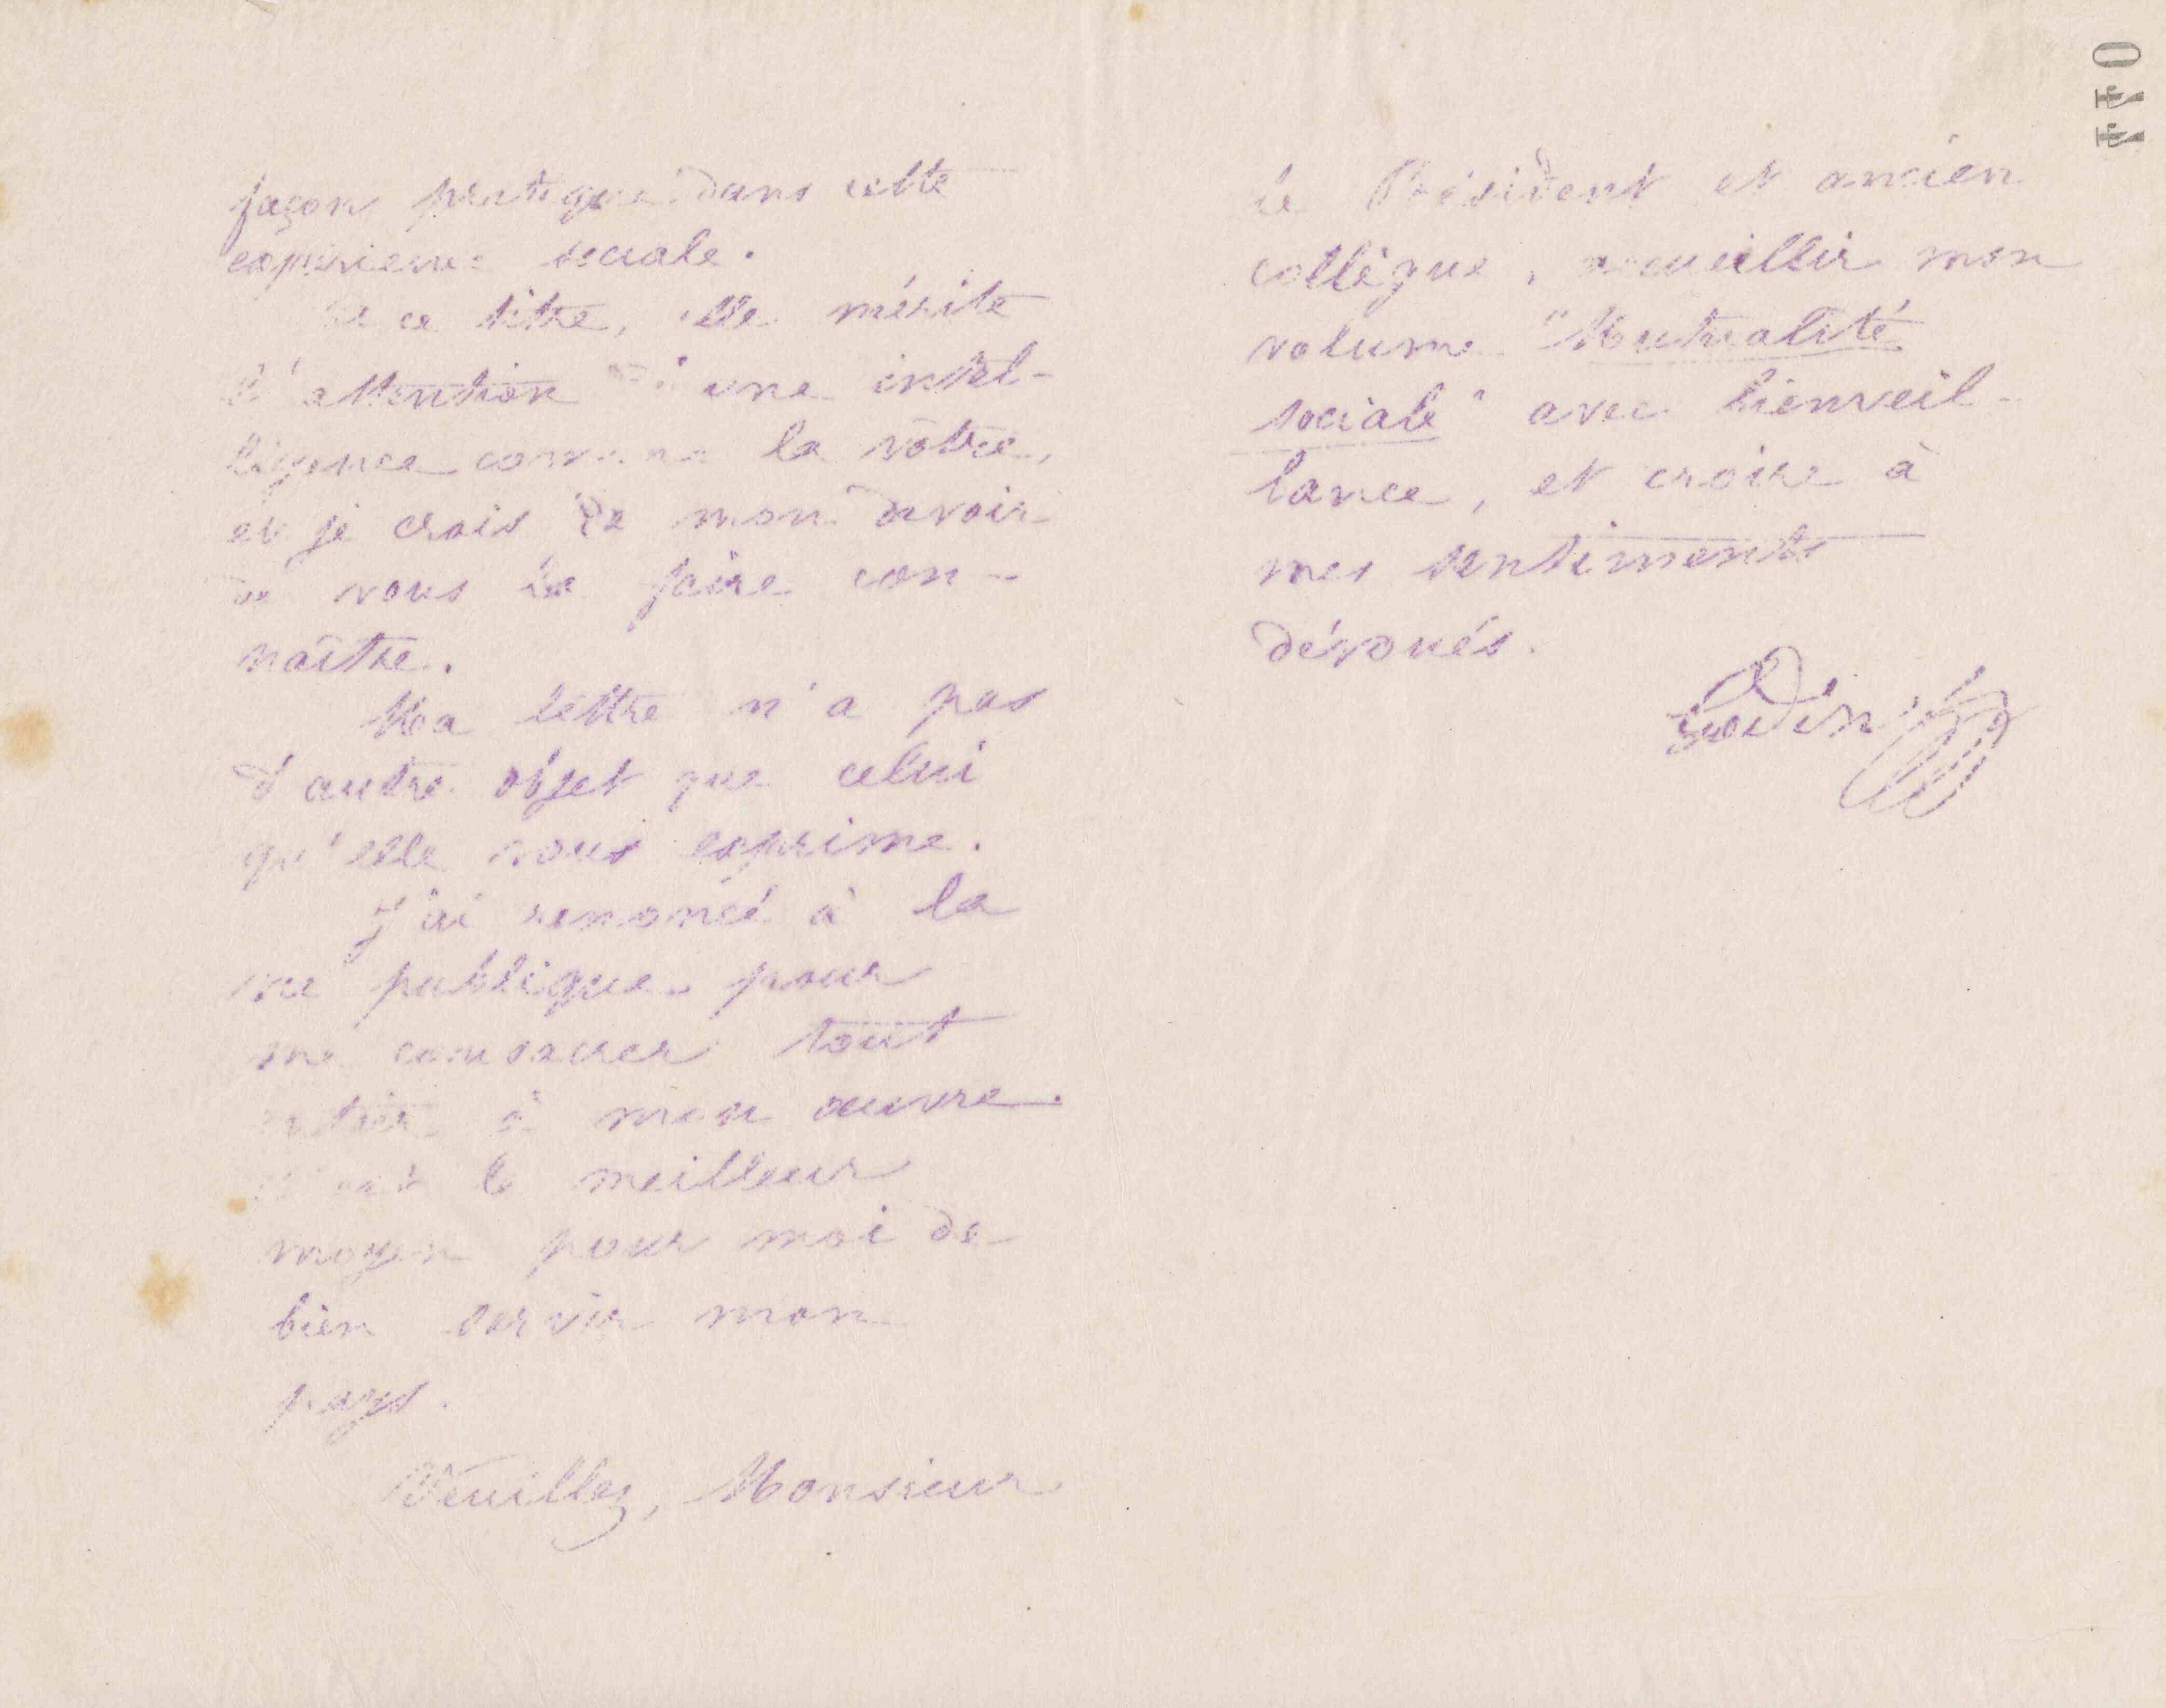 façon pratique dans cette
expérience sociale.
A ce titre, elle mérite
l'attention d'une intel-
ligence comme la vôtre,
et je crois de mon devoir
de vous la faire con-
naître.
Ma lettre n'a pas
d'autre objet que celui
qu'elle vous exprime.
J'ai renoncé à la
vie publique pour
me consacrer tout
entier à mon œuvre.
C'est le meilleur
moyen pour moi de
bien servir mon
pays.
Veuillez, Monsieur
le Président et ancien
collègue, accueillir mon
volume "Mutualité
sociale" avec bienveil-
lance, et croire à
mes sentiments
dévoués.
Godin
044